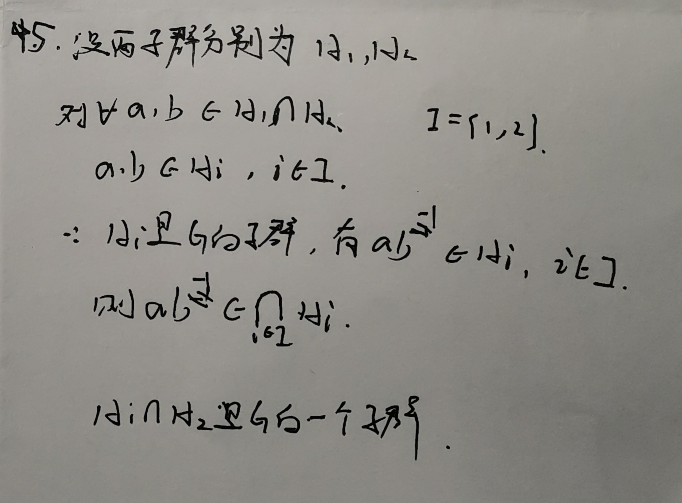 45. 设两子群分别为 H₁,H₂
对∀a,b∈H₁∩H₂ I={1,2}.
a,b∈Hi, i∈I.
∵ Hi是G的子群,有ab⁻¹∈Hi, i∈I.
则ab⁻¹∈⋂_{i∈I} Hi.
H₁∩H₂是G的一个子群.